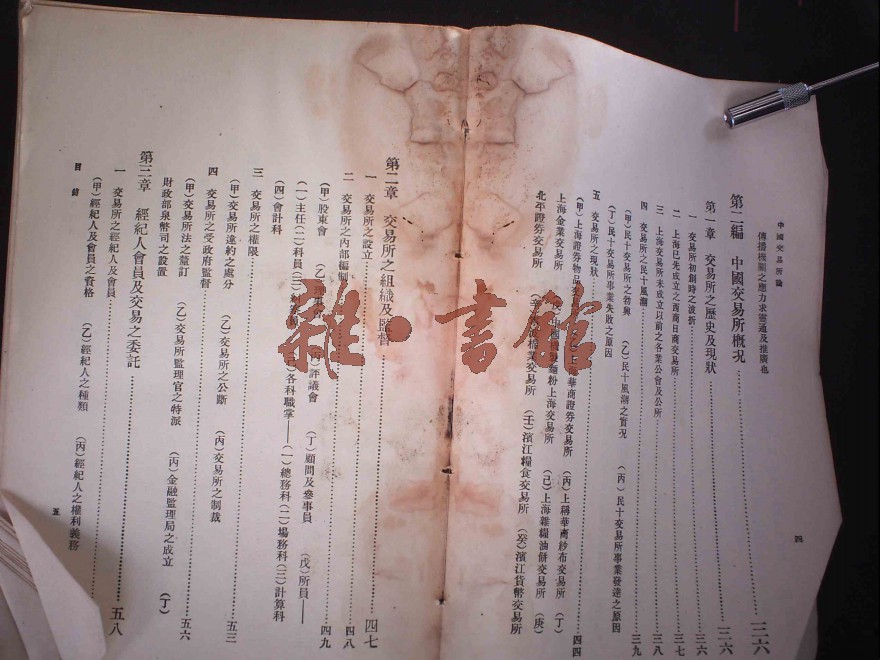 中國交易所論
傳播機關之應力求靈通及推廣也
四
第二編 中國交易所概况 三六
第一章 交易所之歷史及現狀 三六
一 交易所初創時之波折 三六
二 上海已先成立之西商日商交易所 三七
三 上海交易所未成立以前之各業公會及公所 三八
四 交易所之民十風潮 三九
(甲)民十交易所之勃興 (乙)民十風潮之實况 (丙)民十交易所事業發達之原因
(丁)民十交易所事業失敗之原因
五 交易所之現狀 四四
(甲)上海證券物品交 上海華商證券交易所 (丙)上海華商紗布交易所 (丁)
上海金業交易所 麵粉上海交易所 (己)上海雜糧油餅交易所 (庚)
北平證券交易所 交易所 (壬)濱江糧食交易所 (癸)濱江貨幣交易所
第二章 交易所之組織及監督 四七
一 交易所之設立 四七
二 交易所之內部編制 四八
(甲)股東會 (乙)理 評議會 (丁)顧問及參事員 (戊)所員—— 四九
(一)主任(二)科員(三) 各科職掌——(一)總務科(二)場務科(三)計算科
(四)會計科
三 交易所之權限 五三
(甲)交易所違約之處分 (乙)交易所之公斷 (丙)交易所之制裁
四 交易所之受政府監督 五六
(甲)交易所法之釐訂 (乙)交易所監理官之特派 (丙)金融監理局之成立 (丁)
財政部泉幣司之設置
第三章 經紀人會員及交易之委託 五八
一 交易所之經紀人及會員
(甲)經紀人及會員之資格 (乙)經紀人之種類 (丙)經紀人之權利義務
目錄
五
雜·書館